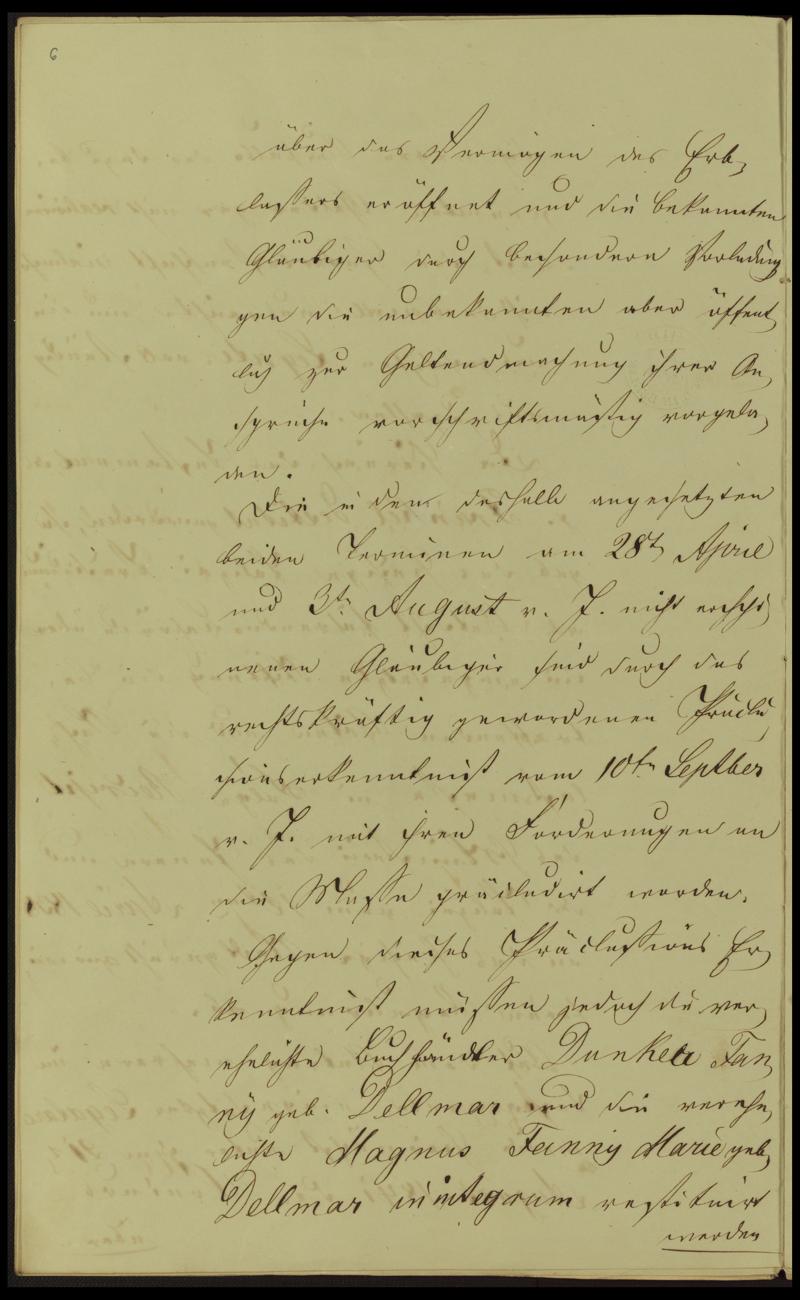 6
über das Vermögen des Erb,
lassers eröffnet und die bekannten
Gläubiger durch besondere Vorladun,
gen die unbekannten aber öffent,
lich zur Geltendmachung ihrer An,
sprüche vorschriftsmäßig vorgela,
den.
Die in den deshalb angesetzten
beiden Terminen am 28t April
und 3t. August v. J. nicht erschi,
nenen Gläubiger sind durch das
rechtskräftig gewordenen Präclu,
sionserkenntnist vom 10tn Septber
v. J. mit ihren Forderungen an
die Masse präcludirt worden.
Gegen dieses Präclussions Er,
kenntnist müssen jedoch die ver,
ehelichte Buchhändler Dunker Fan,
ny geb. Dellmar und die verehe,
lichte Magnus Fanny Marie geb,
Dellmar in integrum restituirt
werden